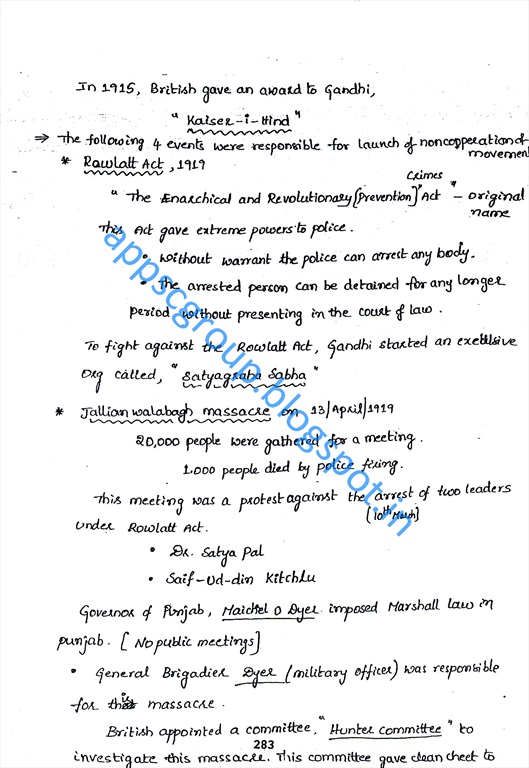 In 1915, British gave an award to Gandhi,
" Kaiser-i-Hind "
⇒ The following 4 events were responsible for launch of noncopperation of
movement
* Rowlatt Act, 1919
" The Enarchical and Revolutionary (Prevention) Crimes Act " - original
name
This Act gave extreme powers to police.
• without warrant the police can arrest any body.
• The arrested person can be detained for any longer
period without presenting in the court of law.
To fight against the Rowlatt Act, Gandhi started an
org called, " Satyagraha Sabha "
* Jallian walabagh massacre on 13/April/1919
20,000 people were gathered for a meeting.
1,000 people died by police firing.
This meeting was a protest against the arrest of two leaders
(10th March)
under Rowlatt Act.
• Dr. Satya Pal
• Saif-ud-din Kitchlu
Governor of Punjab, Maichel O Dyer imposed Marshall law in
punjab. [No public meetings]
• General Brigadier Dyer (military officer) was responsible
for this massacre.
British appointed a committee, " Hunter committee " to
283
investigate this massacre. This committee gave clean cheet to
appscgroup.blogspot.in